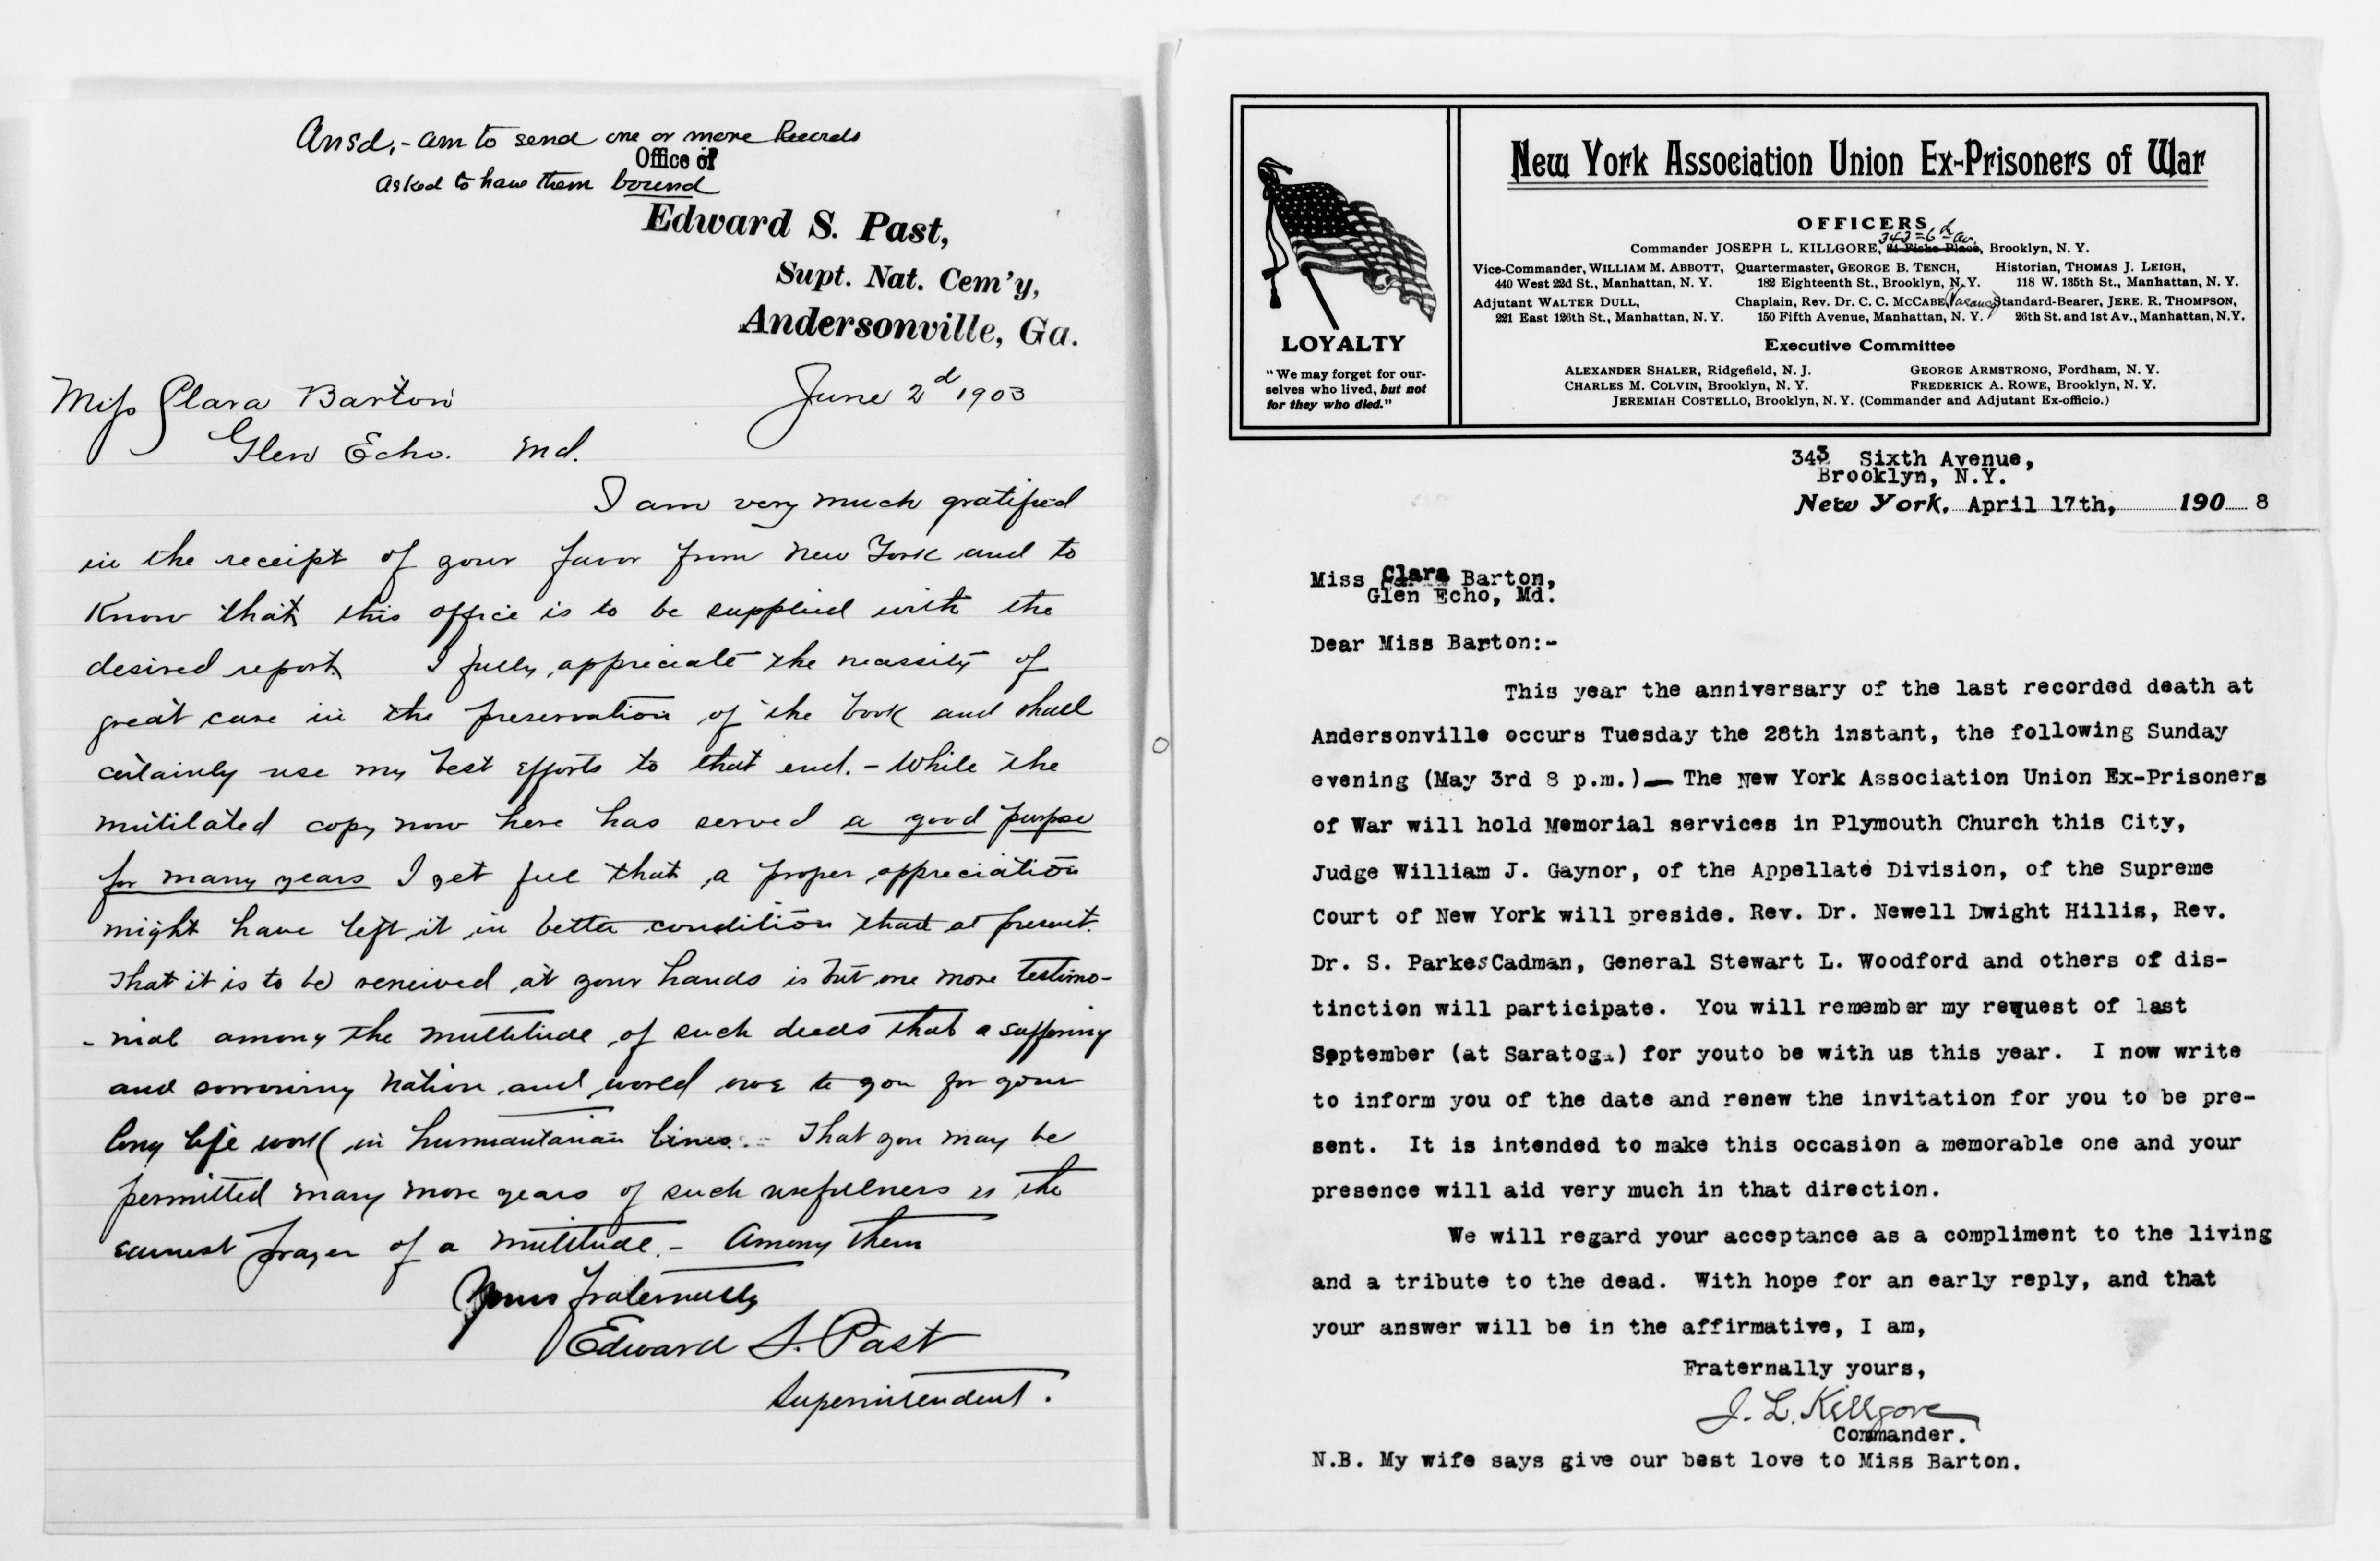 Ansd,- am to send one or more Records
Office of
asked to have them bound
Edward S. Past,
Supt. Nat. Cem'y,
Andersonville, Ga.
June 2d 1903
Miss Clara Barton
Glen Echo. Md.
I am very much gratified
in the receipt of your favor from New York and to
Know that this office is to be supplied with the
desired report. I fully appreciate the necessity of
great care in the preservation of the book and shall
certainly use my best efforts to that end. - While the
mutilated copy now here has served a good purpose
for many years I yet feel that a proper appreciation
might have left it in better condition than at present.
That it is to be renewed at your hands is but one more testimo-
-nial among the multitude of such deeds that a suffering
and sorrowing nation and world owe to you for your
long life work in humanitarian lines. - That you may be
permitted many more years of such usefulness is the
earnest prayer of a multitude. - Among them
Yours fraternally
Edward S. Past
Superintendent.
New York Association Union Ex-Prisoners of War
OFFICERS
343=6th av.
Commander JOSEPH L. KILLGORE, 24 Fiske Place, Brooklyn, N. Y.
Vice-Commander, WILLIAM M. ABBOTT, Quartermaster, GEORGE B. TENCH, Historian, THOMAS J. LEIGH,
440 West 22d St., Manhattan, N. Y. 182 Eighteenth St., Brooklyn, N. Y. 118 W. 135th St., Manhattan, N. Y.
Adjutant WALTER DULL, Chaplain, Rev. Dr. C. C. MCCABE, (Vacancy) Standard-Bearer, JERE. R. THOMPSON,
221 East 126th St., Manhattan, N. Y. 150 Fifth Avenue, Manhattan, N. Y. 26th St. and 1st Av., Manhattan, N.Y.
Executive Committee
ALEXANDER SHALER, Ridgefield, N. J. GEORGE ARMSTRONG, Fordham, N. Y.
CHARLES M. COLVIN, Brooklyn, N. Y. FREDERICK A. ROWE, Brooklyn, N. Y.
JEREMIAH COSTELLO, Brooklyn, N. Y. (Commander and Adjutant Ex-officio.)
LOYALTY
"We may forget for our-
selves who lived, but not
for they who died."
343 Sixth Avenue,
Brooklyn, N.Y.
New York, April 17th, 190 8
Miss Clara Barton,
Glen Echo, Md.
Dear Miss Barton:-
This year the anniversary of the last recorded death at
Andersonville occurs Tuesday the 28th instant, the following Sunday
evening (May 3rd 8 p.m.)— The New York Association Union Ex-Prisoners
of War will hold Memorial services in Plymouth Church this City,
Judge William J. Gaynor, of the Appellate Division, of the Supreme
Court of New York will preside. Rev. Dr. Newell Dwight Hillis, Rev.
Dr. S. Parkes Cadman, General Stewart L. Woodford and others of dis-
tinction will participate. You will remember my request of last
September (at Saratoga) for youto be with us this year. I now write
to inform you of the date and renew the invitation for you to be pre-
sent. It is intended to make this occasion a memorable one and your
presence will aid very much in that direction.
We will regard your acceptance as a compliment to the living
and a tribute to the dead. With hope for an early reply, and that
your answer will be in the affirmative, I am,
Fraternally yours,
J. L. Killgore
Commander.
N.B. My wife says give our best love to Miss Barton.